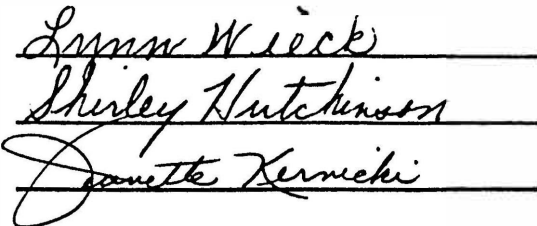 Lynn Wieck
Shirley Hutchinson
Jeanette Kernicki